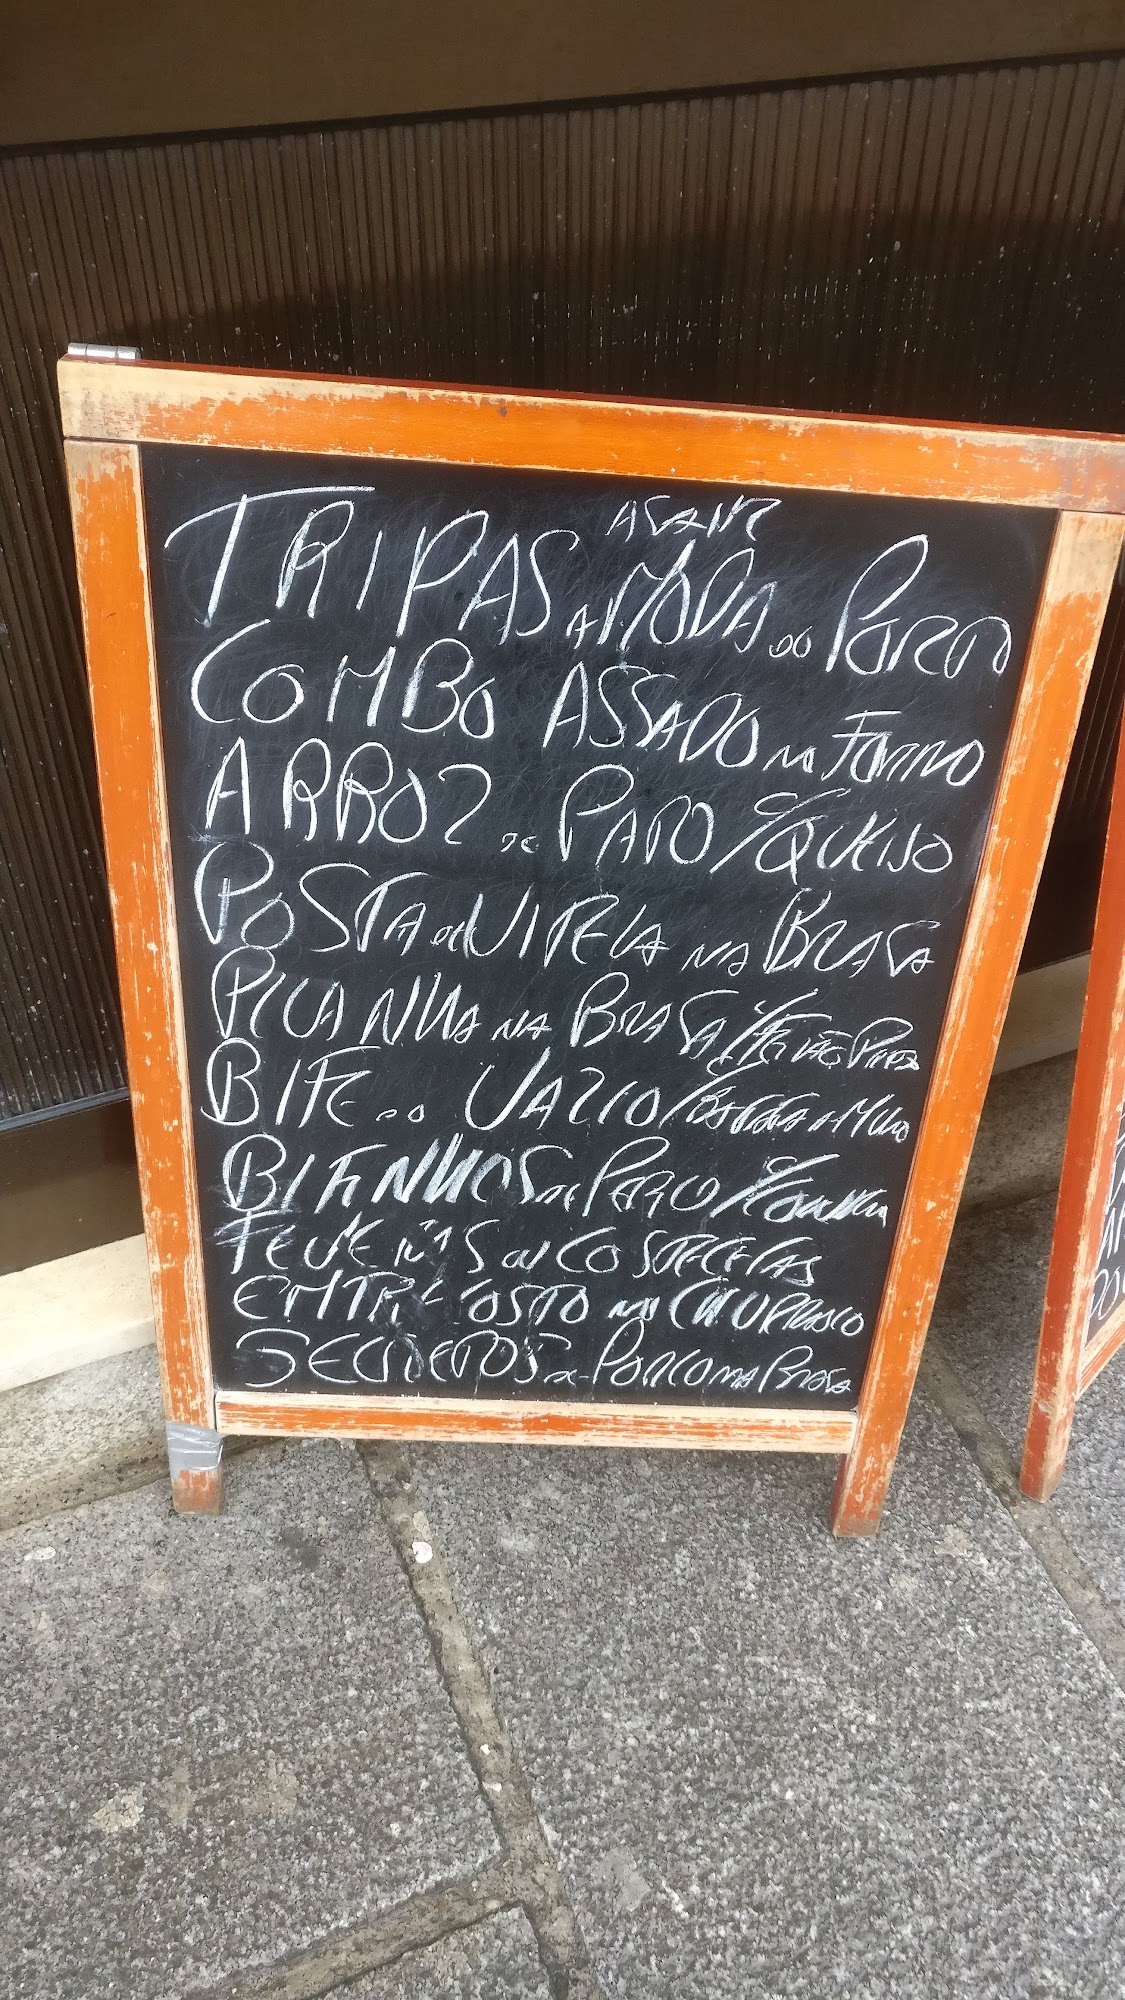 TRIPAS À MODA DO PORTO
COMBO ASSADO NO FORNO
ARROZ DE PATO C/ QUEIJO
POSTA DE VITELA NA BRASA
PICANHA NA BRASA C/ FEIJÃO PRETO
BIFE DO VAZIO / BATATA A MURRO
BIFINHOS DE PERÚ C/
FEVERAS OU COSTELETAS
ENTRECOSTO NO CHURRASCO
SECRETOS DE PORCO NA BRASA